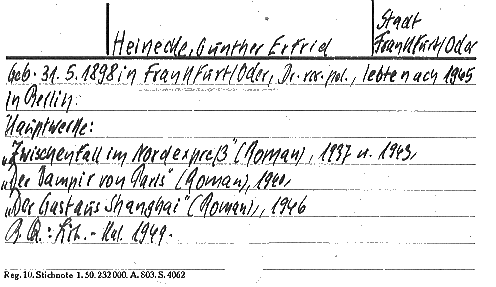 Heinecke, Günther Erfrid
Stadt
Frankfurt/Oder
Geb. 31.5.1898 in Frankfurt/Oder, Dr. rer. pol., lebte nach 1945
in Berlin.
Hauptwerke:
„Zwischenfall im Nordexpreß" (Roman), 1937 u. 1943,
„Der Vampir von Paris" (Roman), 1940,
„Der Gast aus Shanghai" (Roman), 1946
Lit.-Kal. 1949.
Reg. 10. Stichnote 1. 50. 232 000. A. 803. S. 4062